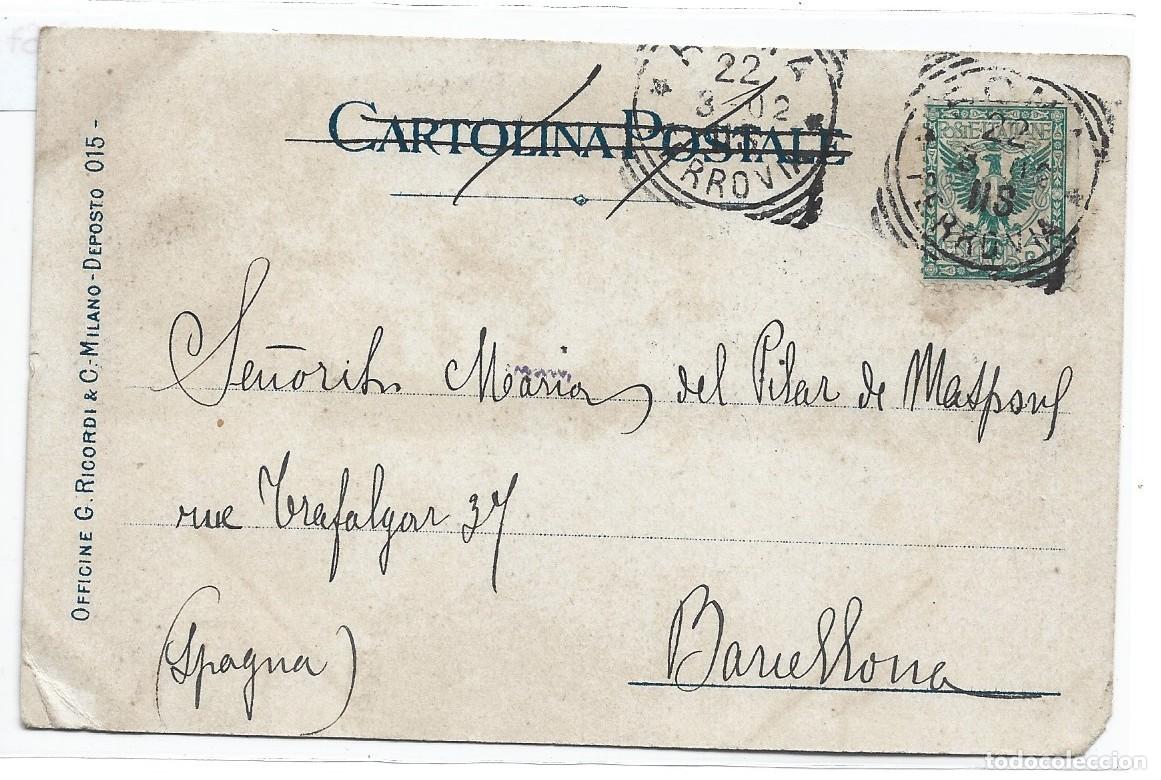 CARTOLINA POSTALE
22
3-02
11S
22
11S
POSTE ITALIANE
OFFICINE G. RICORDI & C.-MILANO-DEPOSTO 015-
Señorita Maria del Pilar de Maspons
rue Trafalgar 37
(Spagna)
Barcellona
todocoleccion